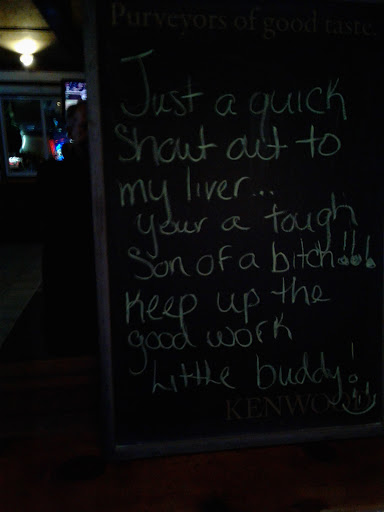 Purveyors of good taste.
Just a quick
Shout out to
my liver...
your a tough
Son of a bitch!!!
Keep up the
good work
Little buddy!
KENWOOD